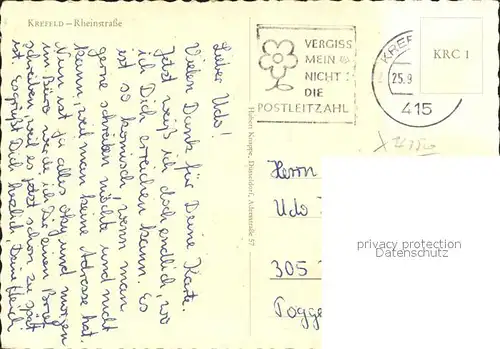 KREFELD – Rheinstraße
Lieber Udo!
Vielen Dank für Deine Karte.
Jetzt weiß ich doch endlich, wo
ich Dich erreichen kann. Es
ist so komisch, wenn man
gerne schreiben möchte und nicht
kann, weil man keine Adresse hat.
Nun ist ja alles okay und morgen
im Büro werde ich Dir einen Brief
schreiben, weil es jetzt schon zu spät
ist. Es grüßt Dich herzlich, Deine
Hubert Knuppe, Düsseldorf, 57
VERGISS
MEIN
NICHT
DIE
POSTLEITZAHL
KREF
25.9
415
KRC 1
Herrn
Udo
305
Pogge
privacy protection
Datenschutz